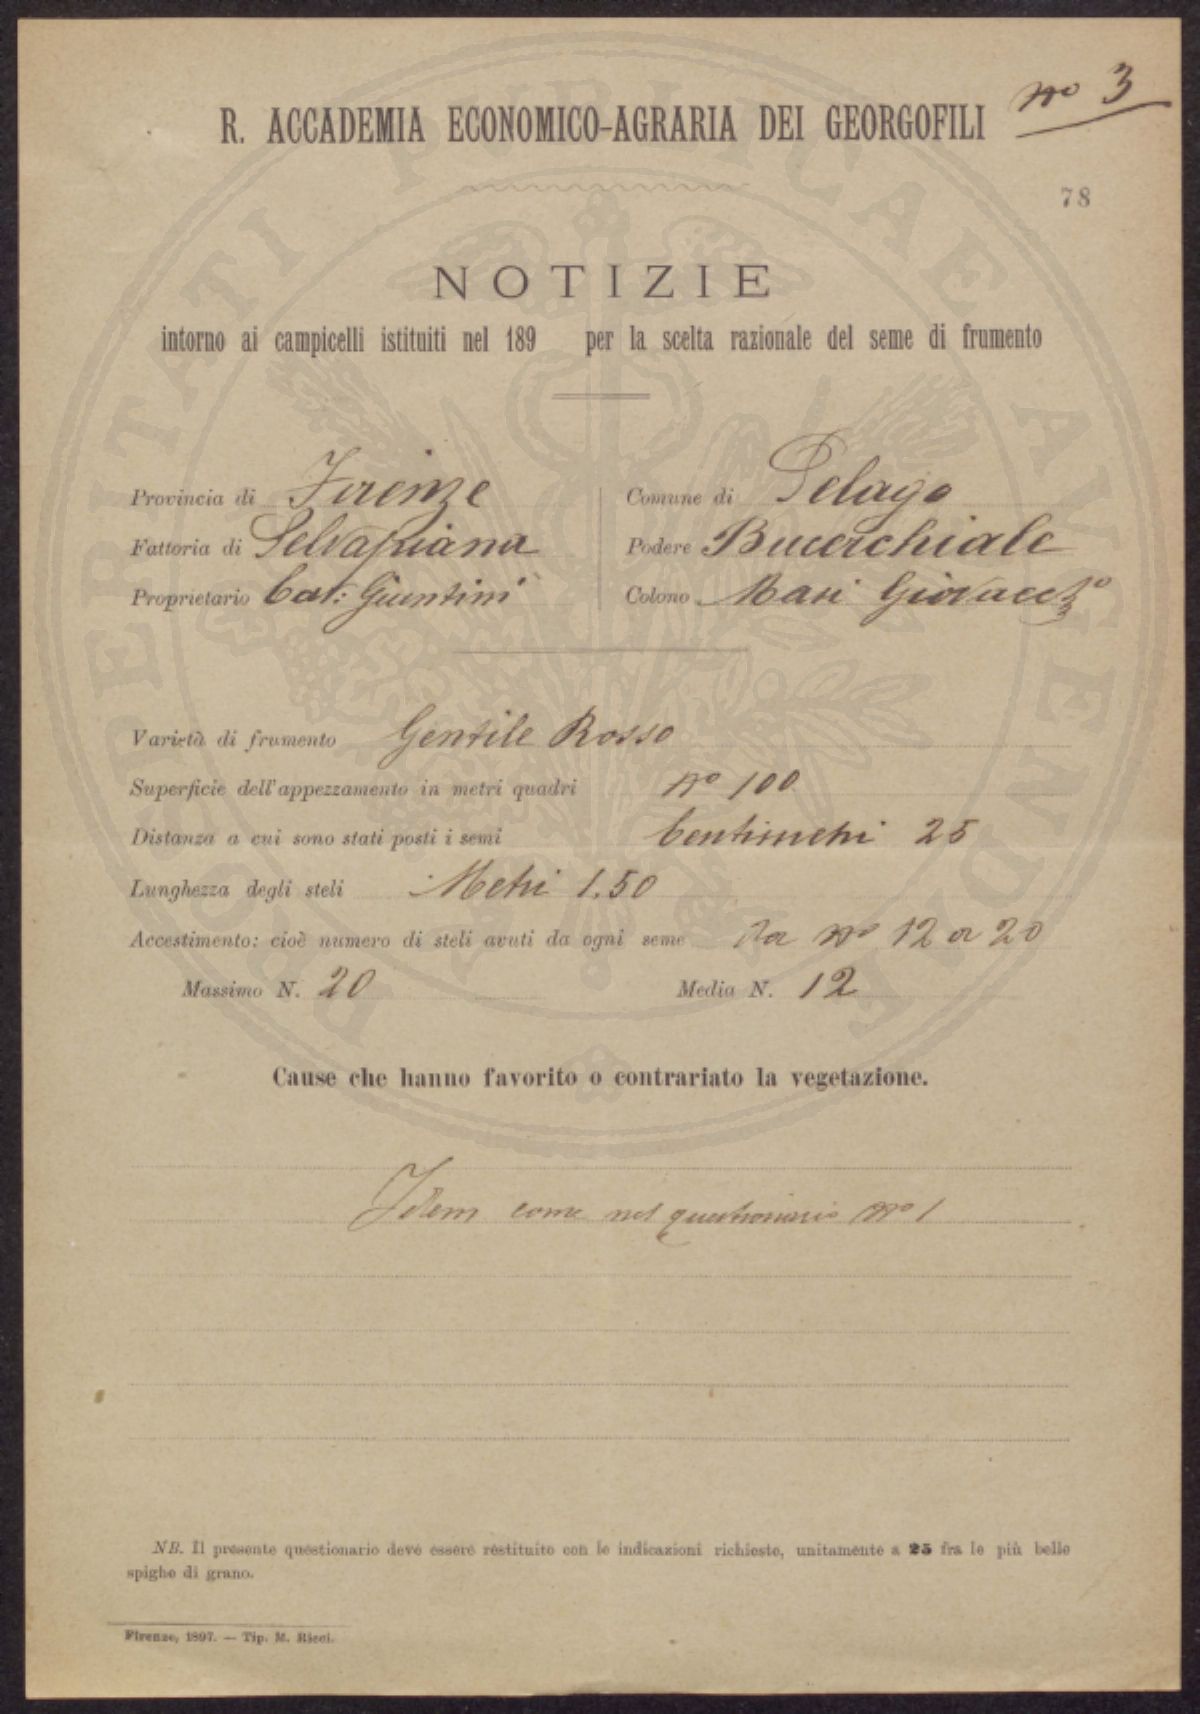 nº 3
R. ACCADEMIA ECONOMICO-AGRARIA DEI GEORGOFILI
78
NOTIZIE
intorno ai campicelli istituiti nel 189 per la scelta razionale del seme di frumento
Provincia di Firenze
Comune di Pelago
Fattoria di Selvapiana
Podere Bucerchiale
Proprietario Cav: Giuntini
Colono Masi Giovacc.º
Varietà di frumento Gentile Rosso
Superficie dell'appezzamento in metri quadri nº 100
Distanza a cui sono stati posti i semi Centimetri 25
Lunghezza degli steli Metri 1.50
Accestimento: cioè numero di steli avuti da ogni seme da nº 12 a 20
Massimo N. 20 Media N. 12
Cause che hanno favorito o contrariato la vegetazione.
Idem come nel questionario nº 1
NB. Il presente questionario deve essere restituito con le indicazioni richieste, unitamente a 25 fra le più belle
spighe di grano.
Firenze, 1897. — Tip. M. Ricci.
PROSPERITATI PUBLICAE AVGENDAE